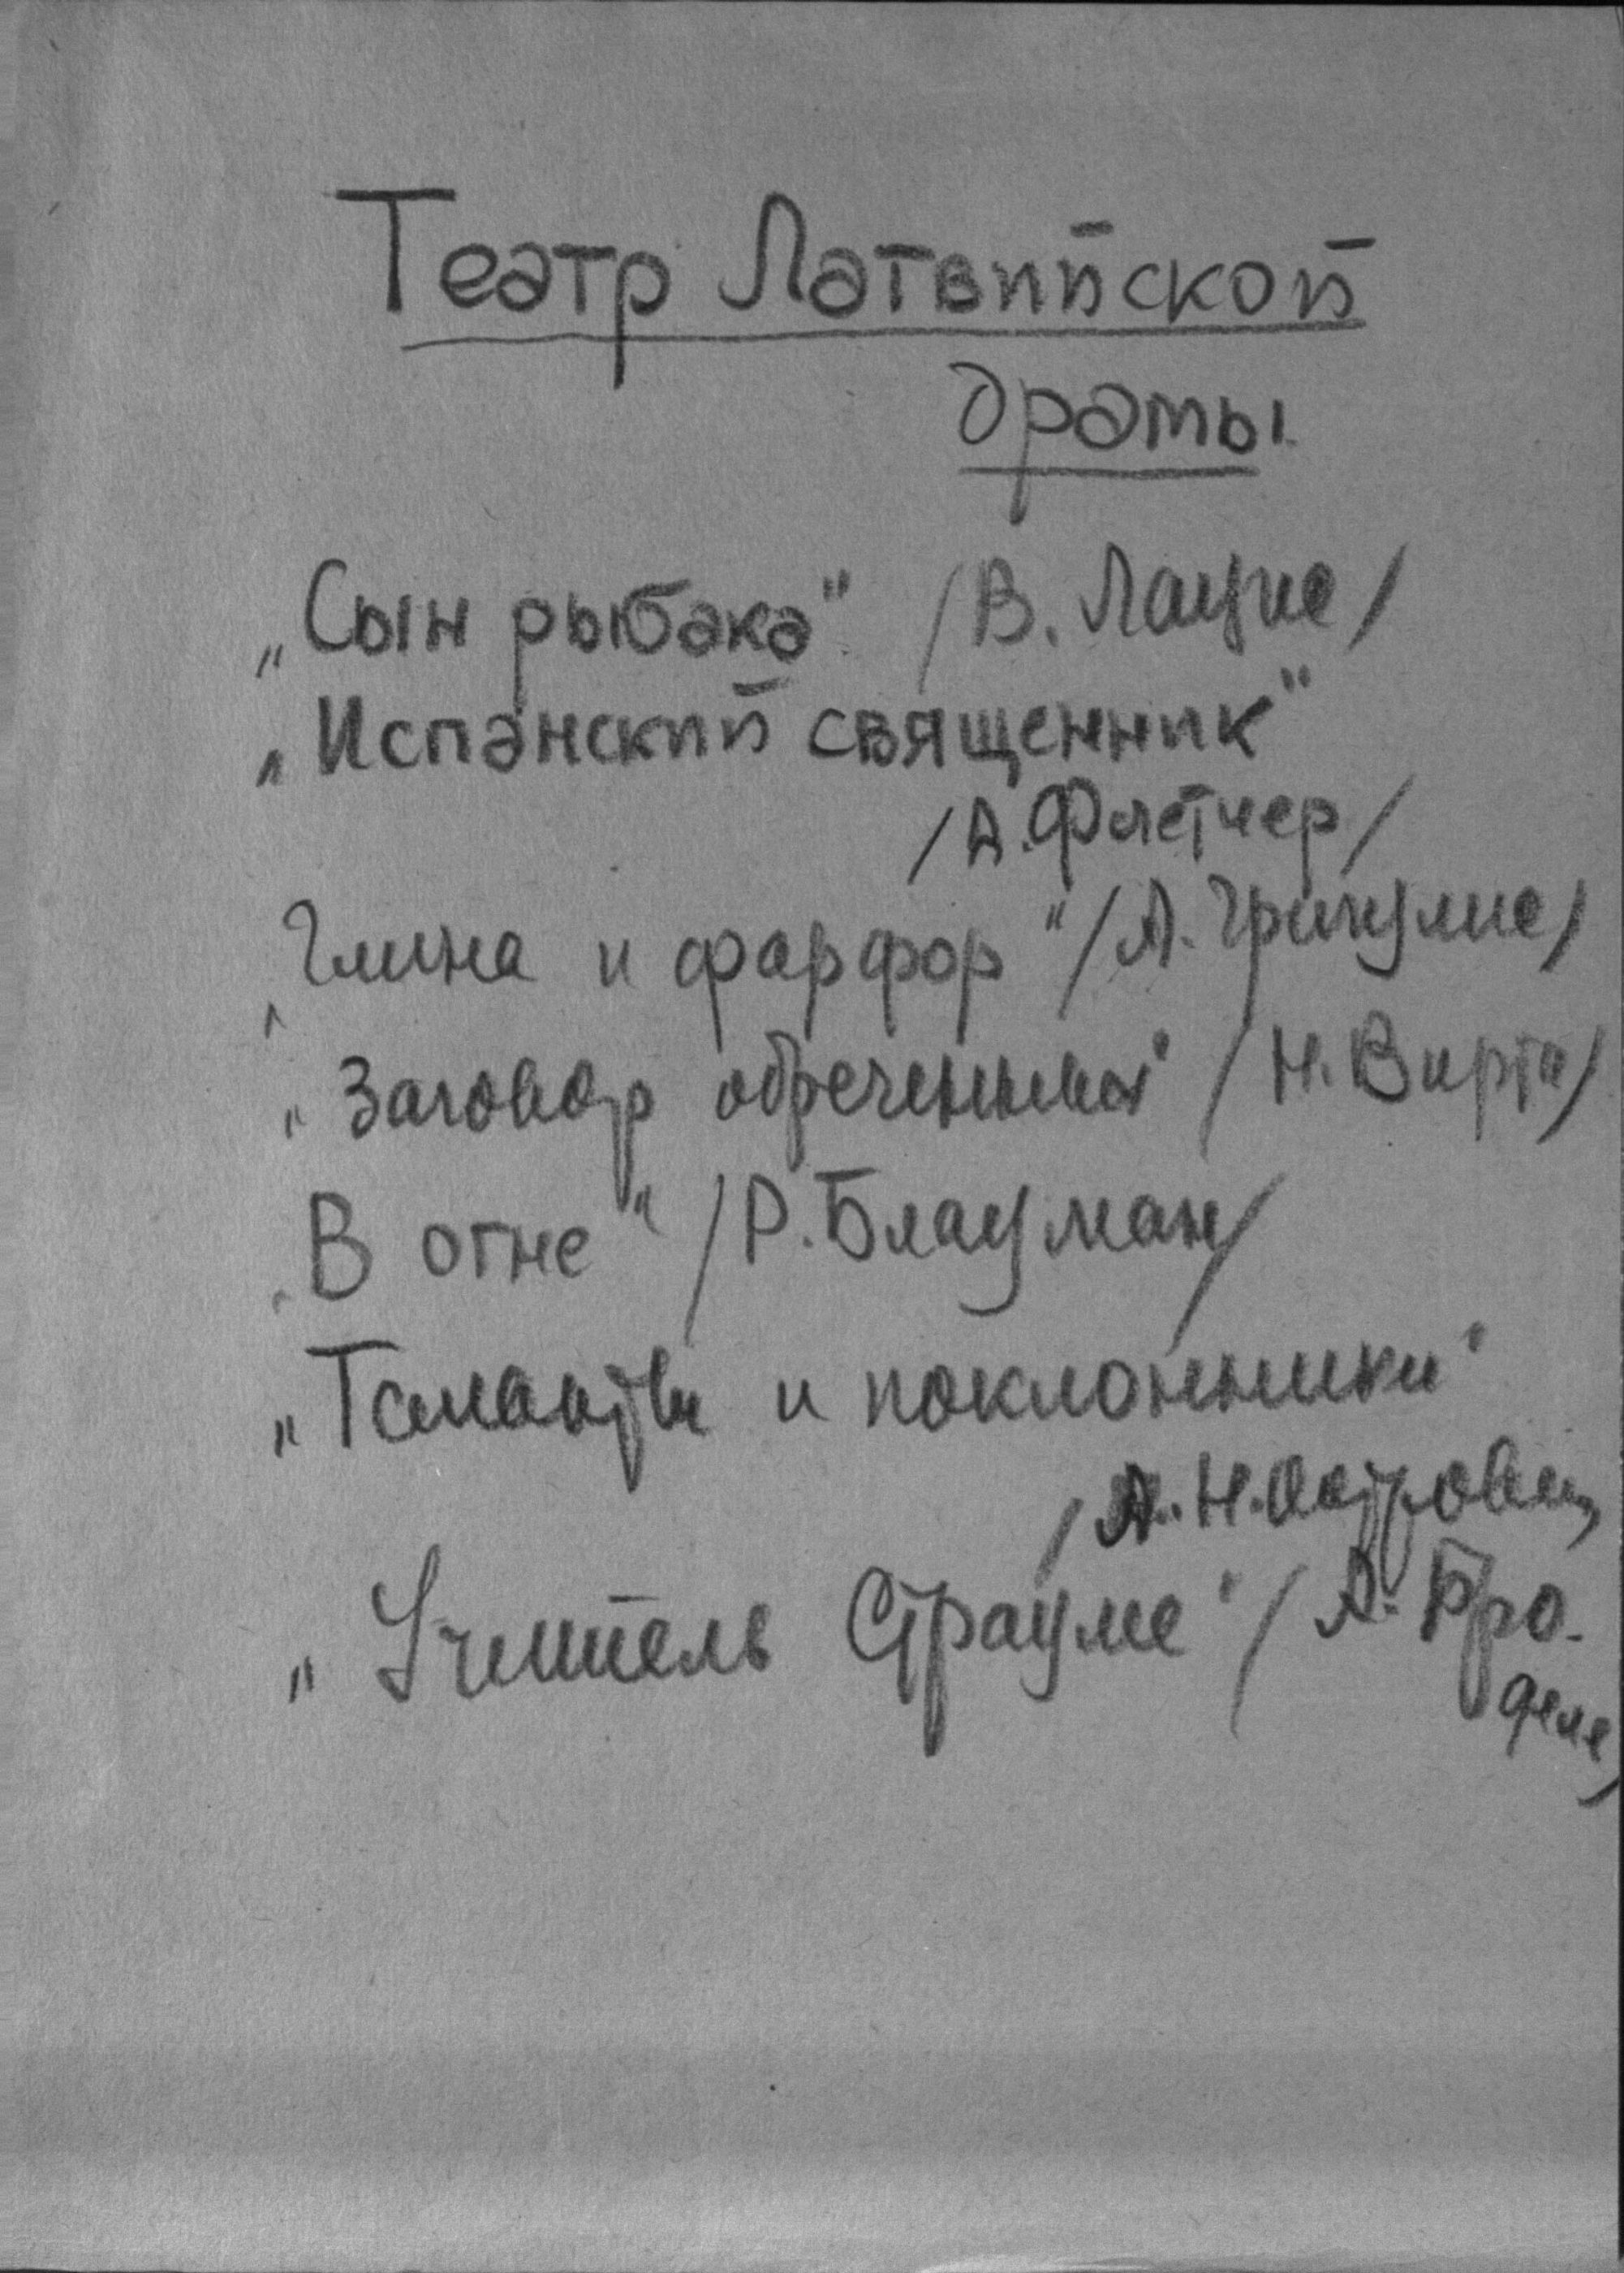 Театр Латвийской
драмы
„Сын рыбака" /В. Лацис/
„Испанский священник"
/Д. Флетчер/
„Глина и фарфор" /А. Григулис/
„Заговор обреченных" /Н. Вирта/
„В огне" /Р. Блауман/
„Таланты и поклонники"
/А. Н. Островск
„Учитель Страуме" /А. Бро-
деле/